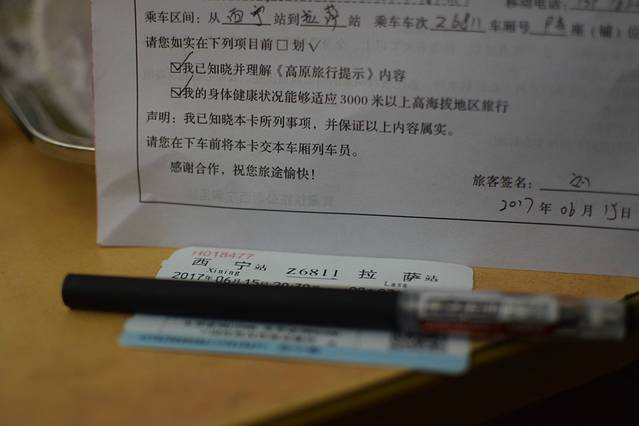 乘车区间：从 西宁 站到 拉萨 站 乘车车次 Z6811 车厢号
请您如实在下列项目前□划√
☑我已知晓并理解《高原旅行提示》内容
☑我的身体健康状况能够适应3000米以上高海拔地区旅行
声明：我已知晓本卡所列事项，并保证以上内容属实。
请您在下车前将本卡交本车厢列车员。
感谢合作，祝您旅途愉快！
旅客签名：
2017年06月15日
H018477
西宁站 Z6811 拉萨站
Xining Lasa
2017年06月15日